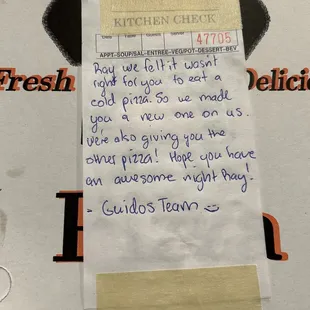 KITCHEN CHECK
47705
APPT-SOUP/SAL-ENTREE-VEG/POT-DESSERT-BEV
Fresh
Delicio
Ray we felt it wasn't
right for you to eat a
cold pizza. So we made
you a new one on us.
We're also giving you the
other pizza! Hope you have
an awesome night Ray!
- Guidos Team